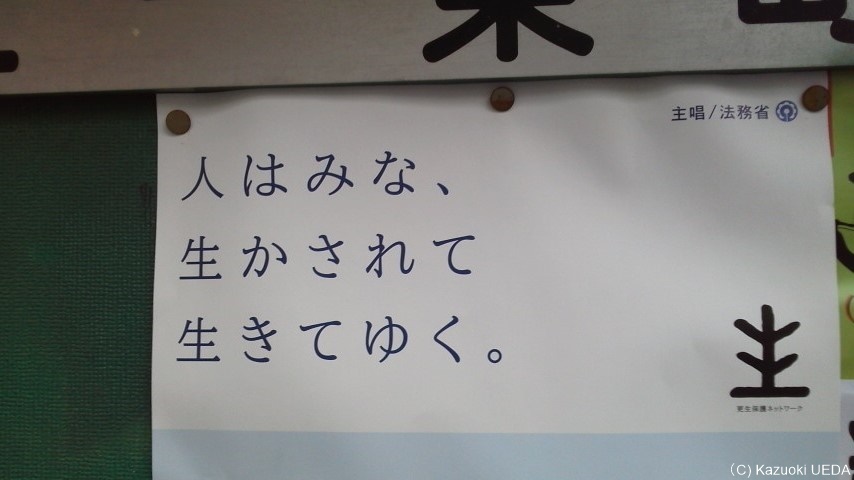 主唱/法務省
人はみな、
生かされて
生きてゆく。
更生保護ネットワーク
(C) Kazuoki UEDA